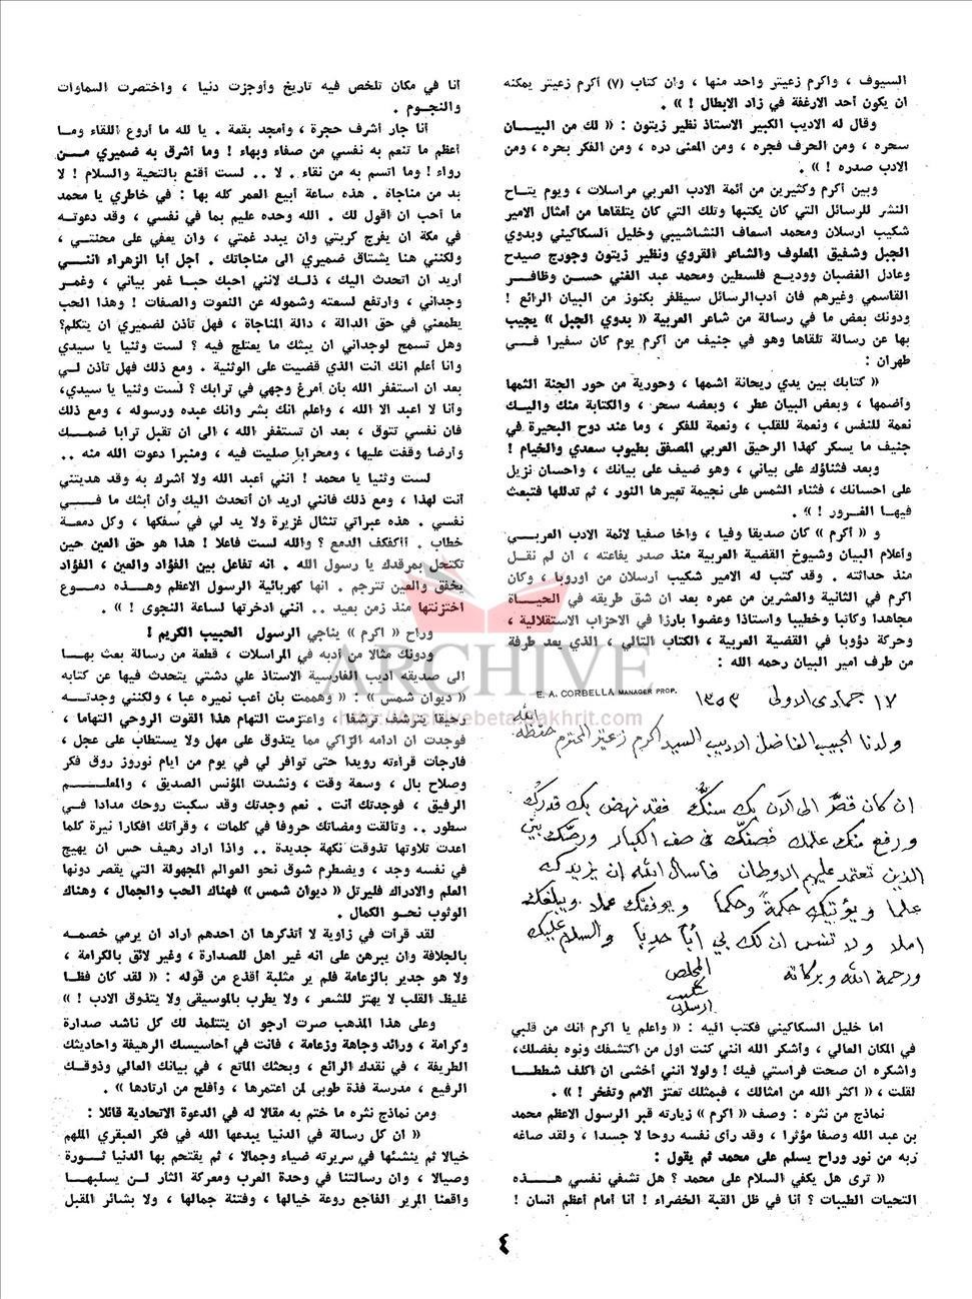 السيوف ، واكرم زعيتر واحد منها ، وان كتاب (٧) أكرم زعيتر يمكنه
ان يكون أحد الارغفة في زاد الابطال ! » .
وقال له الاديب الكبير الاستاذ نظير زيتون : « لك من البيـــان
سحره ، ومن الحرف فجره ، ومن المعنى دره ، ومن الفكر بحره ، ومن
الادب صدره ! » .
وبين أكرم وكثيرين من أئمة الادب العربي مراسلات ، ويوم يتـاح
النشر للرسائل التي كان يكتبها وتلك التي كان يتلقاها من أمثال الامير
شكيب ارسلان ومحمد اسعاف النشاشيبي وخليل السكاكيني وبدوي
الجبل وشفيق المعلوف والشاعر القروي ونظير زيتون وجورج صيدح
وعادل الغضبان ووديع فلسطين ومحمد عبد الغني حسن وظافــر
القاسمي وغيرهم فان أدب الرسائل سيظفر بكنوز من البيان الرائع !
ودونك بعض ما في رسالة من شاعر العربية « بدوي الجبل » يجيب
بها عن رسالة تلقاها وهو في جنيف من أكرم يوم كان سفيرا فــي
طهران :
« كتابك بين يدي ريحانة اشمها ، وحورية من حور الجنة الثمها
وأضمها ، وبعض البيان عطر ، وبعضه سحر ، والكتابة منك واليــك
نعمة للنفس ، ونعمة للقلب ، ونعمة للفكر ، وما عند دوح البحيرة في
جنيف ما يسكر كهذا الرحيق العربي المصفق بطيوب سعدي والخيام !
وبعد فثناؤك على بياني ، وهو ضيف على بيانك ، واحسان نزيل
على احسانك ، فثناء الشمس على نجيمة تعيرها النور ، ثم تدللها فتبعث
فيهـا الغــرور ! » .
و « أكرم » كان صديقا وفيا ، واخا صفيا لائمة الادب العربــي
وأعلام البيان وشيوخ القضية العربية منذ صدر يفاعته ، ان لم نقــل
منذ حداثته . وقد كتب له الامير شكيب أرسلان من اوروبا ، وكان
اكرم في الثانية والعشرين من عمره بعد ان شق طريقه في الحيــاة
مجاهدا وكاتبا وخطيبا واستاذا وعضوا بارزا في الاحزاب الاستقلالية ،
وحركة دؤوبا في القضية العربية ، الكتاب التالي ، الذي يعد طرفة
من طرف امير البيان رحمه الله :
E. A. CORBELLA MANAGER PROP.
١٧ جمادى الاولى ١٣٥٣
ولدنا الحبيب الفاضل الاديب السيد اكرم زعيتر المحترم حفظه الله
ان كان قصّر الى الآن بك سنك فقد نهض بك قدرك
ورفع منك علمك فصفك في صف الكبار ورصّك بين
الذين تعتمد عليهم الاوطان فأسأل الله ان يزيدك
علما ويؤتيك حكمة وحكما ويوفقك عملا ويبلغك
املا ولا تنس ان لك بي أبا حدبا والسلام عليك
ورحمة الله وبركاته
المخلص
شكيب
ارسلان
اما خليل السكاكيني فكتب اليه : « واعلم يا اكرم انك من قلبي
في المكان العالي ، وأشكر الله انني كنت اول من اكتشفك ونوه بفضلك،
واشكره ان صحت فراستي فيك ! ولولا انني أخشى ان اكلف شططـا
لقلت ، « اكثر الله من امثالك ، فبمثلك تعتز الامم وتفخر ! » .
نماذج من نثره : وصف « اكرم » زيارته قبر الرسول الاعظم محمد
بن عبد الله وصفا مؤثرا ، وقد رأى نفسه روحا لا جسدا ، ولقد صاغه
ربه من نور وراح يسلم على محمد ثم يقول :
« ترى هل يكفي السلام على محمد ؟ هل تشفي نفسي هــــذه
التحيات الطيبات ؟ أنا في ظل القبة الخضراء ! أنا أمام أعظم انسان !
أنا في مكان تلخص فيه تاريخ وأوجزت دنيا ، واختصرت السماوات
والنجـوم .
أنا جار أشرف حجرة ، وأمجد بقعة . يا لله ما أروع اللقاء ومـا
أعظم ما تنعم به نفسي من صفاء وبهاء ! وما أشرق به ضميري مــن
رواء ! وما اتسم به من نقاء . لا .. لست أقنع بالتحية والسلام ! لا
بد من مناجاة . هذه ساعة أبيع العمر كله بها : في خاطري يا محمد
ما أحب ان اقول لك . الله وحده عليم بما في نفسي ، وقد دعوتـه
في مكة ان يفرج كربتي وان يبدد غمتي ، وان يعفي على محنتـي ،
ولكنني هنا يشتاق ضميري الى مناجاتك . أجل أبا الزهراء اننــي
أريد ان اتحدث اليك ، ذلـك لانني احبك حبـا غمر بياني ، وغمـر
وجداني ، وارتفع لسعته وشموله عن النعوت والصفات ! وهذا الحب
يطمعني في حق الدالة ، دالة المناجاة ، فهل تأذن لضميري ان يتكلم؟
وهل تسمح لوجداني ان يبثك ما يعتلج فيه ؟ لست وثنيا يا سيدي
وأنا أعلم انك انت الذي قضيت على الوثنية . ومع ذلك فهل تأذن لـي
بعد ان استغفر الله بأن أمرغ وجهي في ترابك ؟ لست وثنيا يا سيدي،
وأنا لا اعبد الا الله ، واعلم انك بشر وانك عبده ورسوله ، ومع ذلك
فان نفسي تتوق ، بعد ان تستغفر الله ، الى ان تقبل ترابا ضمــك
وأرضا وقفت عليها ، ومحرابا صليت فيه ، ومنبرا دعوت الله منه ..
لست وثنيا يا محمد ! انني أعبد الله ولا أشرك به وقد هديتني
أنت لهذا ، ومع ذلك فانني اريد ان أتحدث اليك وأن أبثك ما فــي
نفسي . هذه عبراتي تنثال غزيرة ولا يد لي في سفكها ، وكل دمعـة
خطاب . أأكفكف الدمع ؟ والله لست فاعلا ! هذا هو حق العين حين
تكتحل بمرقدك يا رسول الله . انه تفاعل بين الفؤاد والعين ، الفؤاد
يخلق والعين تترجم . انها كهربائية الرسول الاعظم وهــذه دمــوع
اختزنتها منذ زمن بعيد .. انني ادخرتها لساعة النجوى ! » .
وراح « اكرم » يناجي الرسول الحبيب الكريم !
ودونك مثالا من أدبه في المراسلات ، قطعة من رسالة بعث بهـا
الى صديقه أديب الفارسية الاستاذ علي دشتي يتحدث فيها عن كتابه
« ديوان شمس » : « وهممت بأن أعب نميره عبا ، ولكنني وجدتــه
رحيقا يترشف ترشفا ، واعتزمت التهام هذا القوت الروحي التهاما ،
فوجدت ان ادامه الزاكي مما يتذوق على مهل ولا يستطاب على عجل ،
فارجأت قراءته رويدا حتى توافر لي في يوم من ايام نوروز روق فكر
وصلاح بال ، وسعة وقت ، ونشدت المؤنس الصديق ، والمعلــــم
الرفيق ، فوجدتك أنت . نعم وجدتك وقد سكبت روحك مدادا فــي
سطور .. وتألقت ومضاتك حروفا في كلمات ، وقرأتك افكارا نيرة كلما
اعدت تلاوتها تذوقت نكهة جديدة .. واذا اراد رهيف حس ان يهيج
في نفسه وجد ، ويضطرم شوق نحو العوالم المجهولة التي يقصر دونها
العلم والادراك فليرتل « ديوان شمس » فهناك الحب والجمال ، وهناك
الوثوب نحـو الكمال .
لقد قرأت في زاوية لا أتذكرها ان احدهم اراد ان يرمي خصمــه
بالجلافة وان يبرهن على انه غير اهل للصدارة ، وغير لائق بالكرامة ،
ولا هو جدير بالزعامة فلم ير مثلبة أقذع من قوله : « لقد كان فظــا
غليظ القلب لا يهتز للشعر ، ولا يطرب بالموسيقى ولا يتذوق الادب ! »
وعلى هذا المذهب صرت ارجو ان يتتلمذ لك كل ناشد صدارة
وكرامة ، ورائد وجاهة وزعامة ، فانت في أحاسيسك الرهيفة واحاديثك
الطريفة ، في نقدك الرائع ، وبحثك الماتع ، في بيانك العالي وذوقـك
الرفيع ، مدرسة فذة طوبى لمن اعتمرها ، وأفلح من ارتادها » .
ومن نماذج نثره ما ختم به مقالا له في الدعوة الاتحادية قائلا :
« ان كل رسالة في الدنيا يبدعها الله في فكر العبقري الملهم
خيالا ثم ينشئها في سريرته ضياء وجمالا ، ثم يقتحم بها الدنيا ثــورة
وصيالا ، وان رسالتنا في وحدة العرب ومعركة الثار لــن يسلبهــا
واقعنا المرير الفاجع روعة خيالها ، وفتنة جمالها ، ولا بشائر المقبل
٤
ARCHIVE